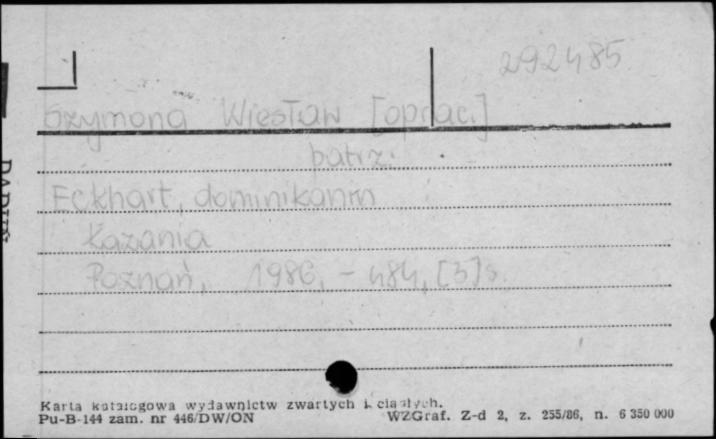 292485
Szymona Wiesław [oprac.]
patrz:
Eckhart, dominikanin
Kazania
Poznań, 1986, - 484, [3] s.
Karta katalogowa wydawnictw zwartych i ciągłych.
Pu-B-144 zam. nr 446/DW/ON WZGraf. Z-d 2, z. 255/86, n. 6 350 000